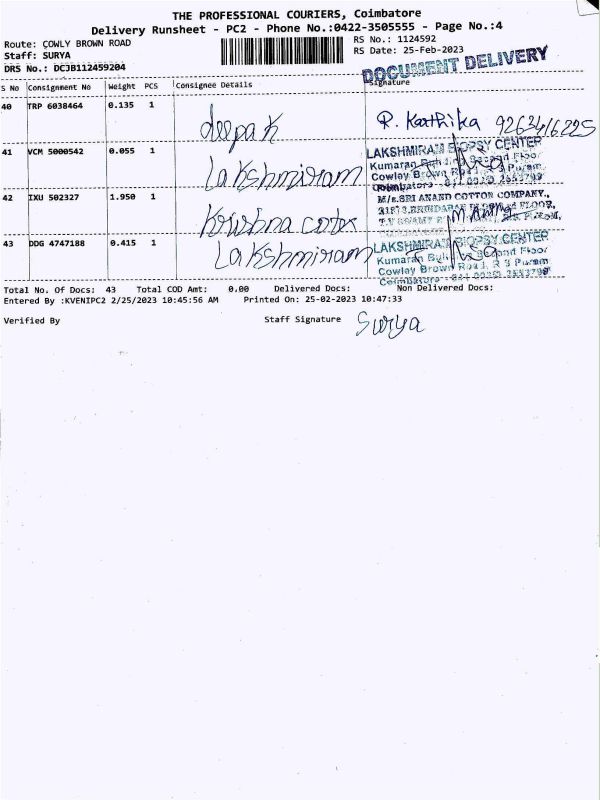 THE PROFESSIONAL COURIERS, Coimbatore
Delivery Runsheet - PC2 - Phone No.:0422-3505555 - Page No.:4
Route: COWLY BROWN ROAD
RS No.: 1124592
Staff: SURYA
RS Date: 25-Feb-2023
DRS No.: DCJB112459204
DOCUMENT DELIVERY
S No Consignment No Weight PCS Consignee Details Signature
40 TRP 6038464 0.135 1
deepak R. Karthika
41 VCM 5000542 0.055 1
Lakshmiram
LAKSHMIRAM BIOPSY CENTER
Kumaran
Cowley Brown Road, R S Puram
Coimbatore
42 IXU 502327 1.950 1
Krishna
M/s.SRI ANAND COTTON COMPANY.,
43 DDG 4747188 0.415 1
Lakshmiram
LAKSHMIRAM BIOPSY CENTER
Kumaran
Cowley Brown Road, R S Puram
Coimbatore
Total No. Of Docs: 43 Total COD Amt: 0.00 Delivered Docs: Non Delivered Docs:
Entered By :KVENIPC2 2/25/2023 10:45:56 AM Printed On: 25-02-2023 10:47:33
Verified By Staff Signature Surya